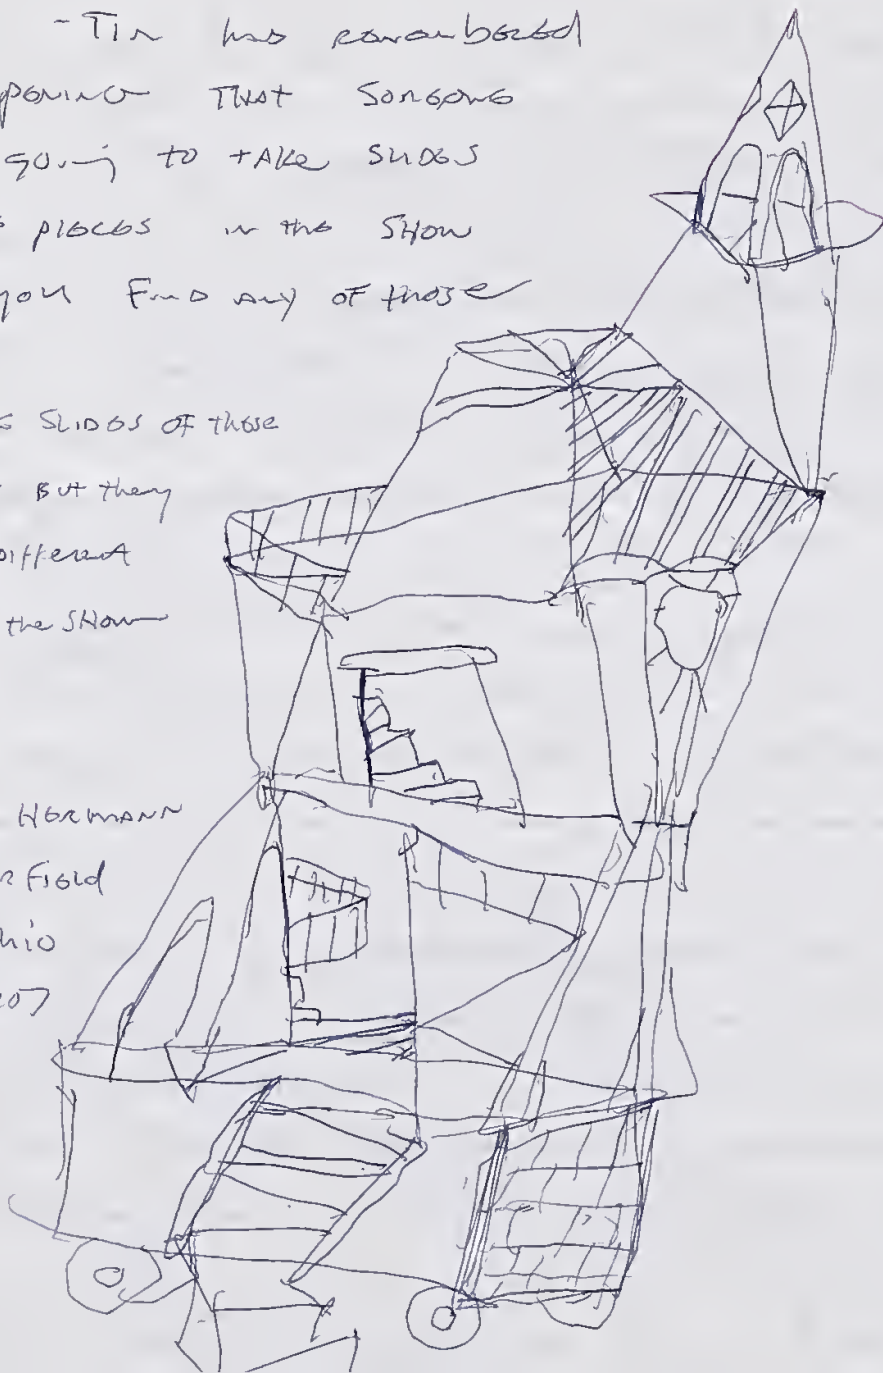 -Tim has remembered
pening THAT Someone
going to tAKe SLIDES
PIECES in the SHOW
you FinD any OF those
SLIDES OF those
But they
Different
the SHOW
HERMANN
R Field
hio
207